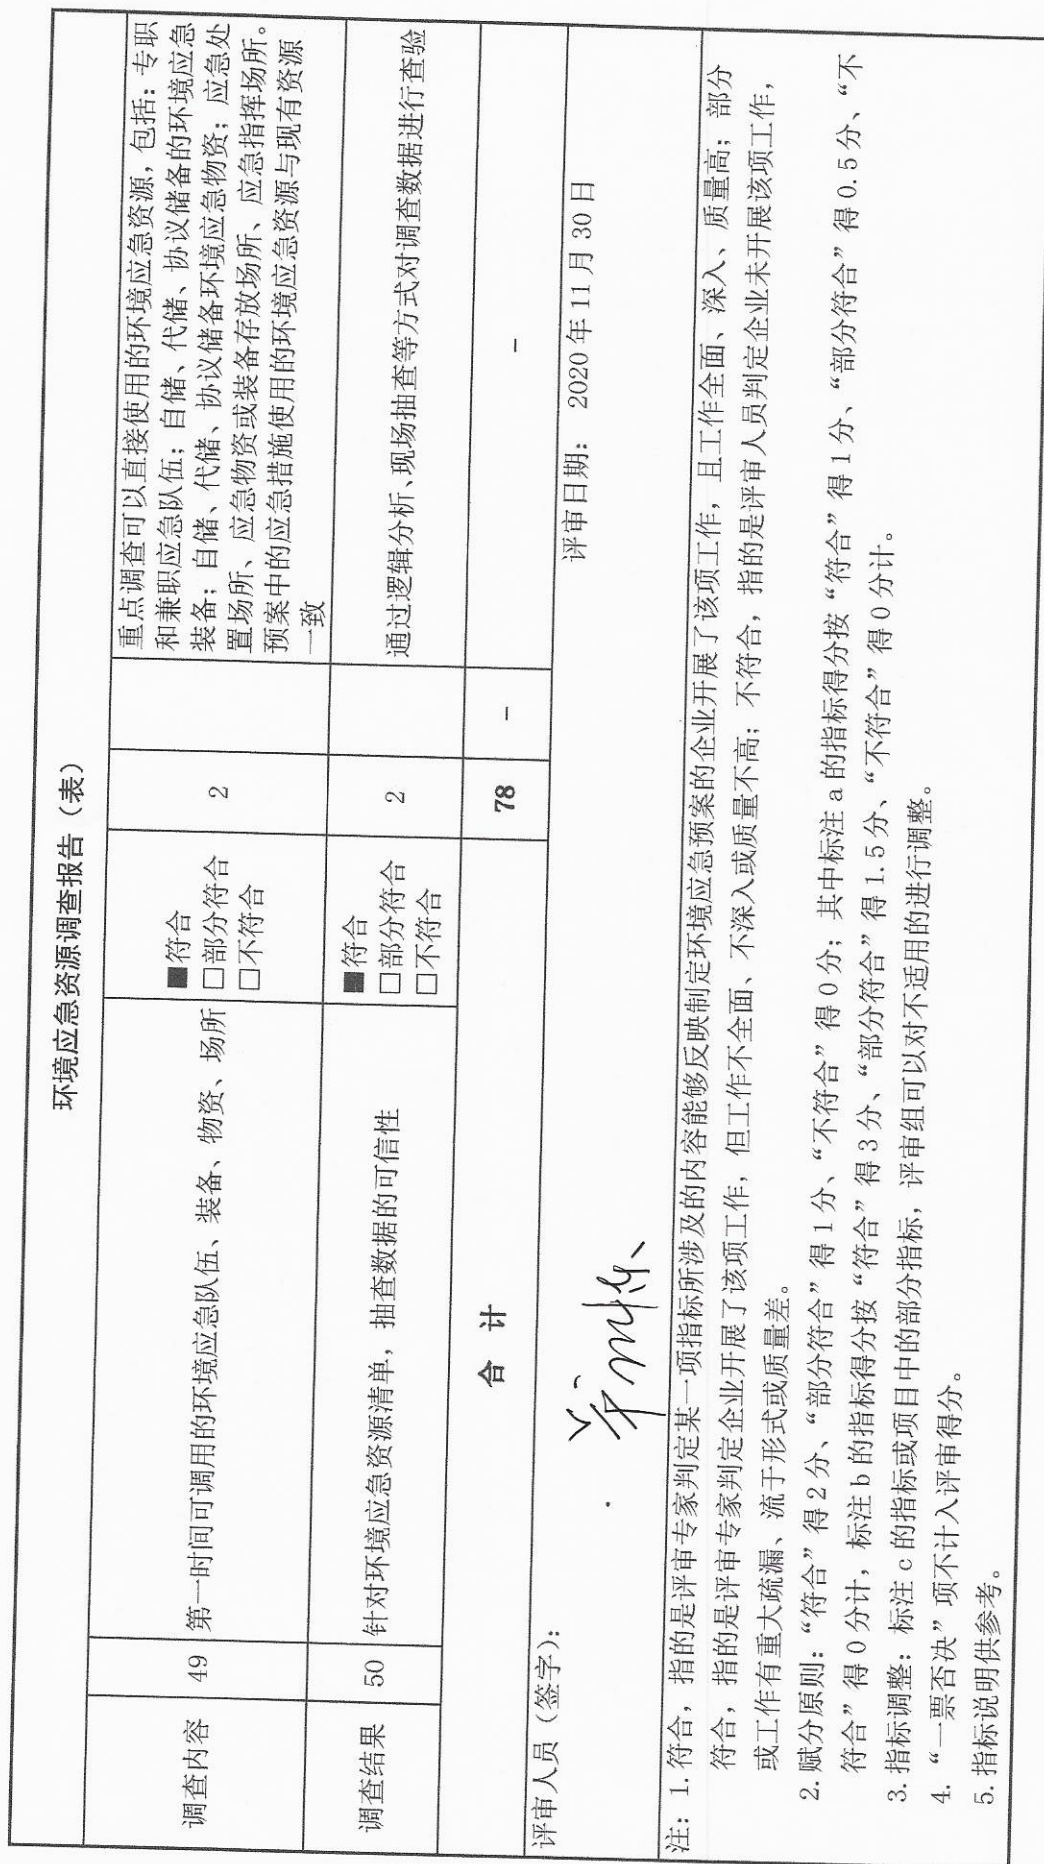 环境应急资源调查报告（表）
调查内容
49
第一时间可调用的环境应急队伍、装备、物资、场所
■符合
□部分符合
□不符合
2
重点调查可以直接使用的环境应急资源，包括：专职
和兼职应急队伍；自储、代储、协议储备的环境应急
装备；自储、代储、协议储备环境应急物资；应急处
置场所、应急物资或装备存放场所、应急指挥场所。
预案中的应急措施使用的环境应急资源与现有资源
一致
调查结果
50
针对环境应急资源清单，抽查数据的可信性
■符合
□部分符合
□不符合
2
通过逻辑分析、现场抽查等方式对调查数据进行查验
合 计
78
–
–
评审人员（签字）：
评审日期： 2020 年 11 月 30 日
注：1. 符合，指的是评审专家判定某一项指标所涉及的内容能够反映制定环境应急预案的企业开展了该项工作，且工作全面、深入、质量高；部分
符合，指的是评审专家判定企业开展了该项工作，但工作不全面、不深入或质量不高；不符合，指的是评审人员判定企业未开展该项工作，
或工作有重大疏漏、流于形式或质量差。
2. 赋分原则：“符合”得 2 分、“部分符合”得 1 分、“不符合”得 0 分；其中标注 a 的指标得分按“符合”得 1 分、“部分符合”得 0.5 分、“不
符合”得 0 分计，标注 b 的指标得分按“符合”得 3 分、“部分符合”得 1.5 分、“不符合”得 0 分计。
3. 指标调整：标注 c 的指标或项目中的部分指标，评审组可以对不适用的进行调整。
4. “一票否决”项不计入评审得分。
5. 指标说明供参考。